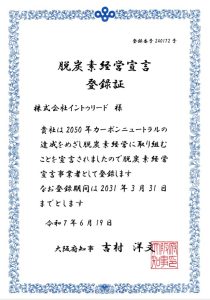 登録番号 240172 号
脱炭素経営宣言
登録証
株式会社イントゥリード 様
貴社は2050年カーボンニュートラルの
達成をめざし脱炭素経営に取り組む
ことを宣言されましたので脱炭素経営
宣言事業者として登録します
なお登録期間は2031年3月31日
までとします
令和7年6月19日
大阪府知事 吉村 洋文